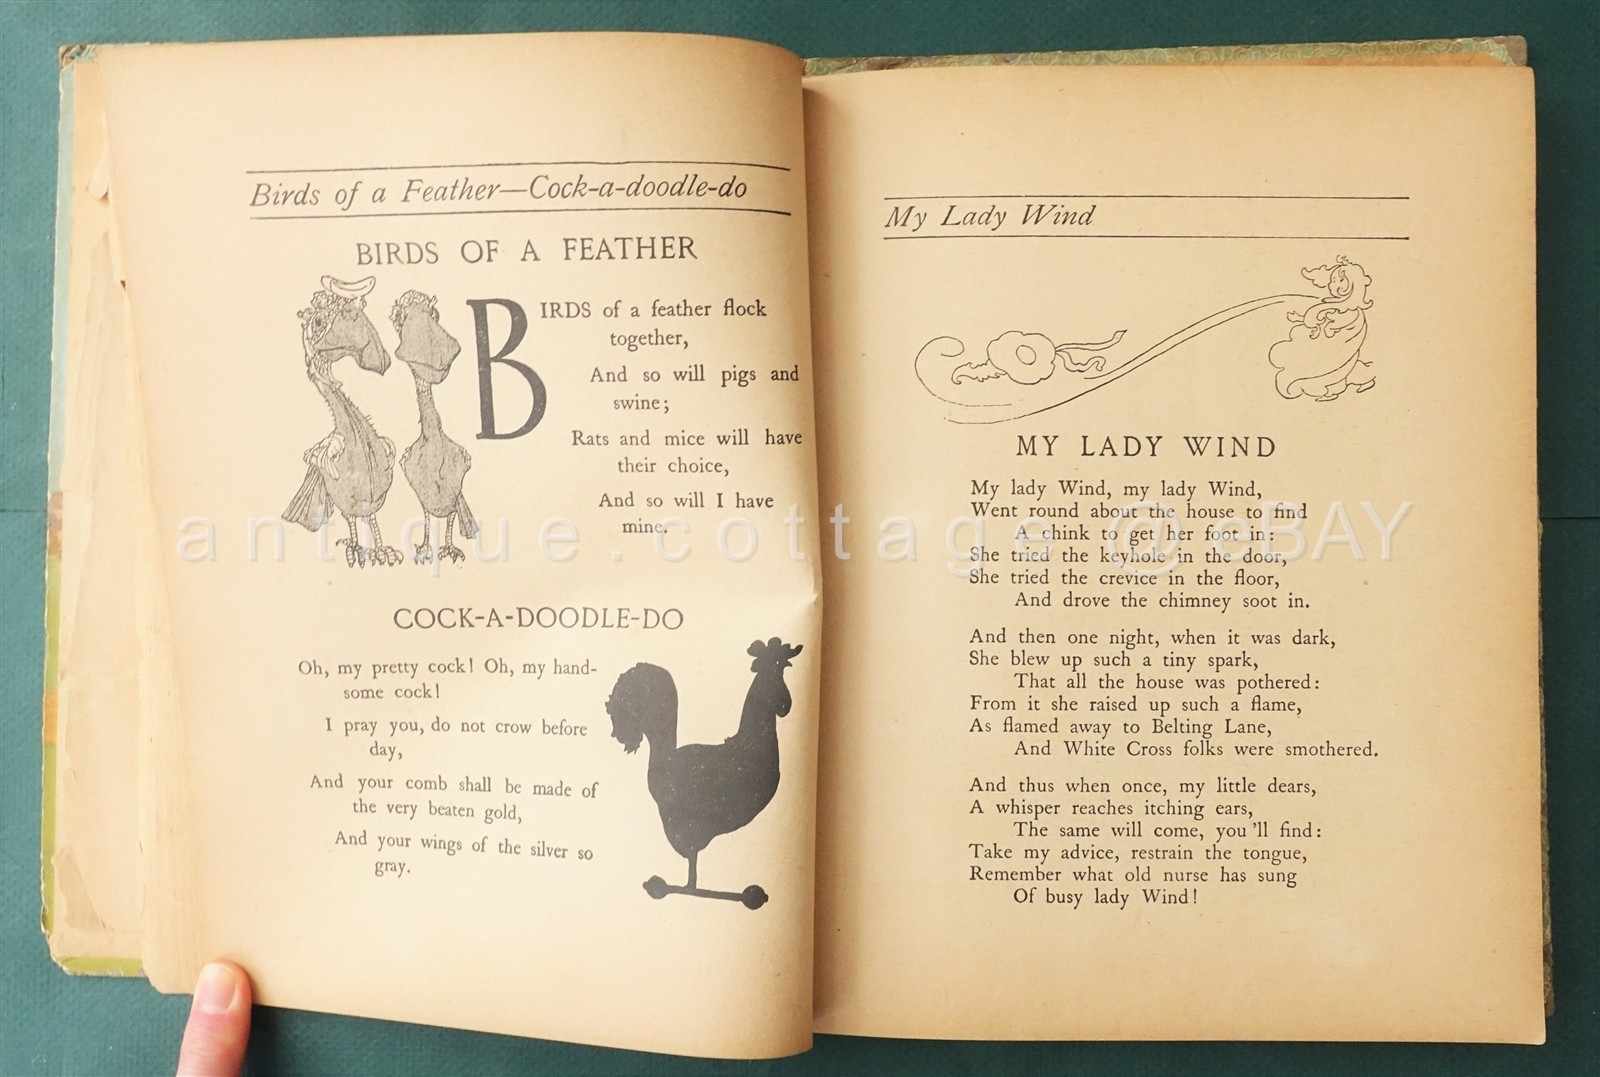 Birds of a Feather—Cock-a-doodle-do
BIRDS OF A FEATHER
BIRDS of a feather flock
together,
And so will pigs and
swine;
Rats and mice will have
their choice,
And so will I have
mine.
COCK-A-DOODLE-DO
Oh, my pretty cock! Oh, my hand-
some cock!
I pray you, do not crow before
day,
And your comb shall be made of
the very beaten gold,
And your wings of the silver so
gray.
My Lady Wind
MY LADY WIND
My lady Wind, my lady Wind,
Went round about the house to find
A chink to get her foot in:
She tried the keyhole in the door,
She tried the crevice in the floor,
And drove the chimney soot in.
And then one night, when it was dark,
She blew up such a tiny spark,
That all the house was pothered:
From it she raised up such a flame,
As flamed away to Belting Lane,
And White Cross folks were smothered.
And thus when once, my little dears,
A whisper reaches itching ears,
The same will come, you 'll find:
Take my advice, restrain the tongue,
Remember what old nurse has sung
Of busy lady Wind!
antique.cottage @ eBAY